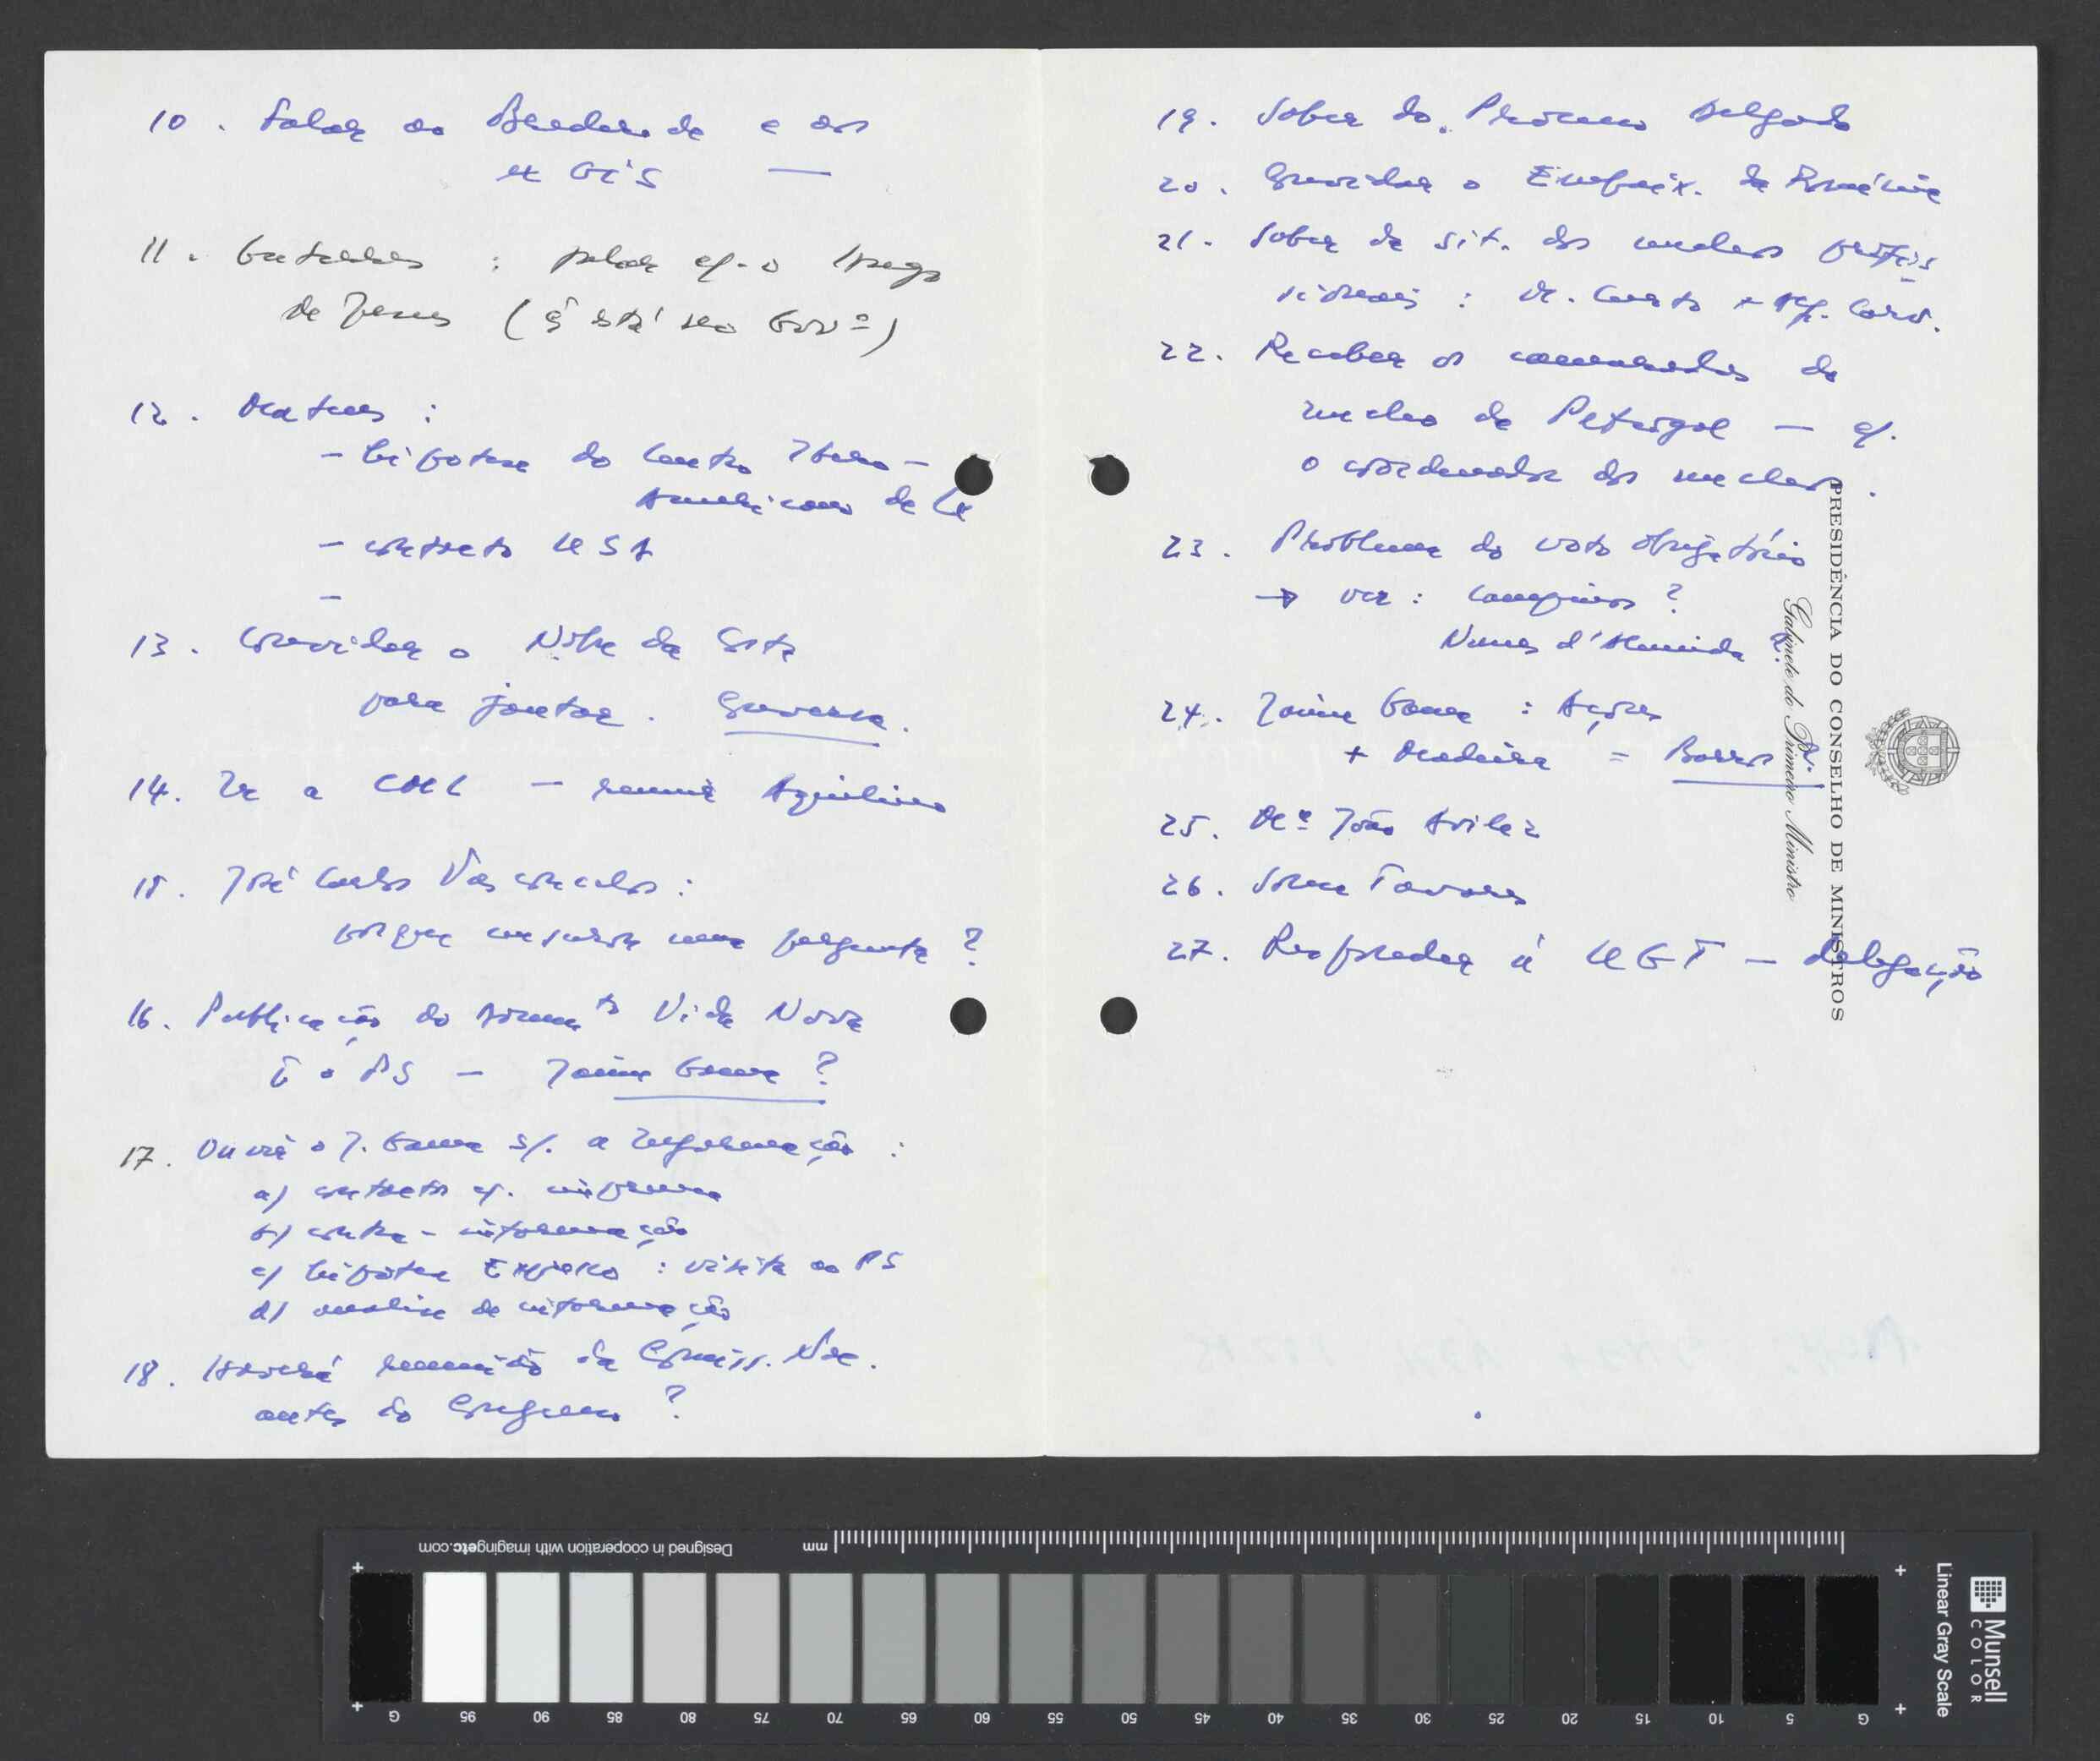 10. Falar ao e aos
ex GIS —
11. Guterres : falar c/. o
de Jesus (q̃ está no Govº)
12. Mateus :
- hipótese do Centro Ibero-
Americano de Lx
- contrato USA
-
13. Convidar o Nobre da Costa
para jantar. Conversa.
14. Ir a CML - reunir Aquilino
15. José Carlos Vasconcelos :
porque censurou uma pergunta ?
16. Publicação do Vida Nova
P o PS - Jaime Gama ?
17. Ouvir o J. Gama s/. a Informação :
a) contactos c/. imprensa
b) contra-informação
c) hipótese Expresso : visita ao PS
d) análise de informação
18. Haverá reunião da Comiss. Nac.
antes do Congresso ?
19. Saber do Processo Delgado
20. Convidar o Embaix. da Roménia
21. Saber da sit. dos núcleos profis
sionais : Dr. Couto +
22. Receber os camaradas do
núcleo da Petrogal — c/.
o coordenador dos núcleos.
23. Problema do voto obrigatório
→ ver : Campinos ?
Nunes d'Almeida ?
24. Jaime Gama : Açores
+ Madeira = Barros
25. João Avilez
26. Sousa Tavares
27. Responder à UGT - delegação
PRESIDÊNCIA DO CONSELHO DE MINISTROS
Gabinete do Primeiro Ministro
Designed in cooperation with imagingetc.com
mm
G 95 90 85 80 75 70 65 60 55 50 45 40 35 30 25 20 15 10 5 G
Linear Gray Scale
Munsell
COLOR